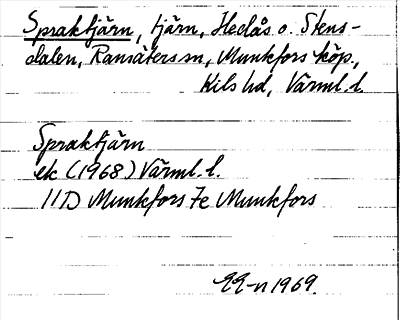 Spraktjärn, tjärn, Hedås o. Stens-
dalen, Ransäters sn, Munkfors köp.,
Kils hd, Värml. l.
Spraktjärn
ek (1968) Värml. l.
11D Munkfors 7e Munkfors
1969.